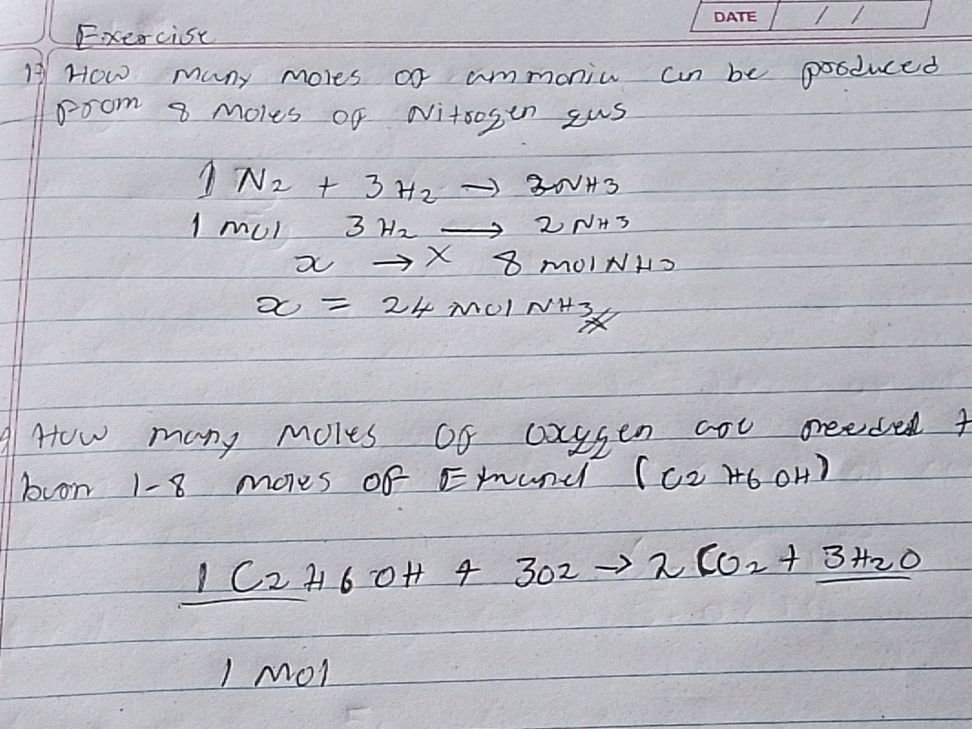 DATE / /
Exercise
1) How many moles of ammonia can be produced
from 8 moles of Nitrogen gas
1 N2 + 3 H2 → 2 NH3
1 mol 3 H2 → 2 NH3
x → x 8 mol NH3
x = 24 mol NH3
How many moles of oxygen are needed t
burn 1-8 moles of Ethanol (C2 H6 OH)
1 C2 H6 OH + 3O2 → 2 CO2 + 3 H2O
1 mol